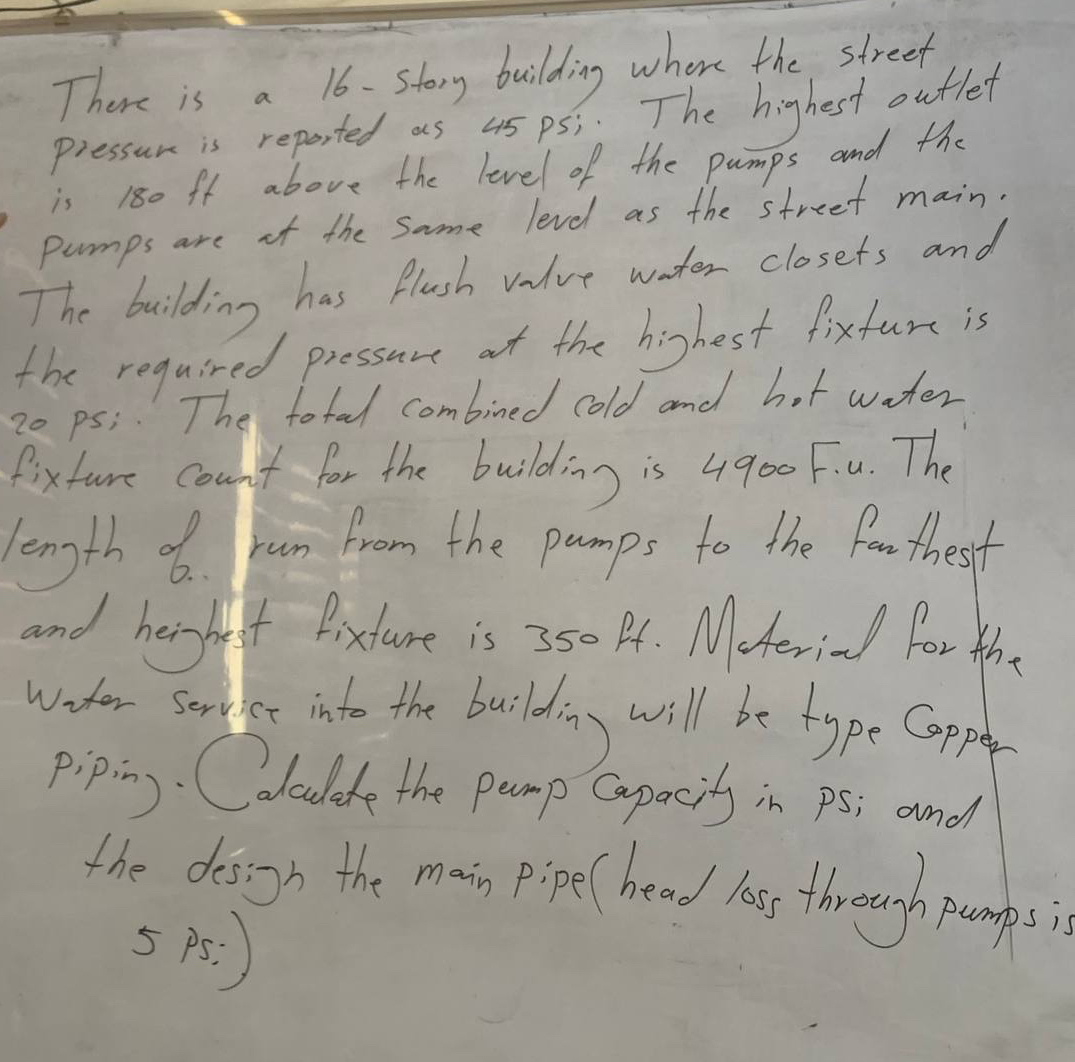 There is a 16-Story building where the street
pressure is reported as 45 psi. The highest outlet
is 180 ft above the level of the pumps and the
pumps are at the same level as the street main.
The building has flush valve water closets and
the required pressure at the highest fixture is
20 psi. The total combined cold and hot water
fixture count for the building is 4900 F.u. The
length of run from the pumps to the farthest
and heighest fixture is 350 ft. Material for the
Water service into the building will be type Copper
piping. Calculate the pump capacity in psi and
the design the main pipe (head loss through pumps is
5 psi)